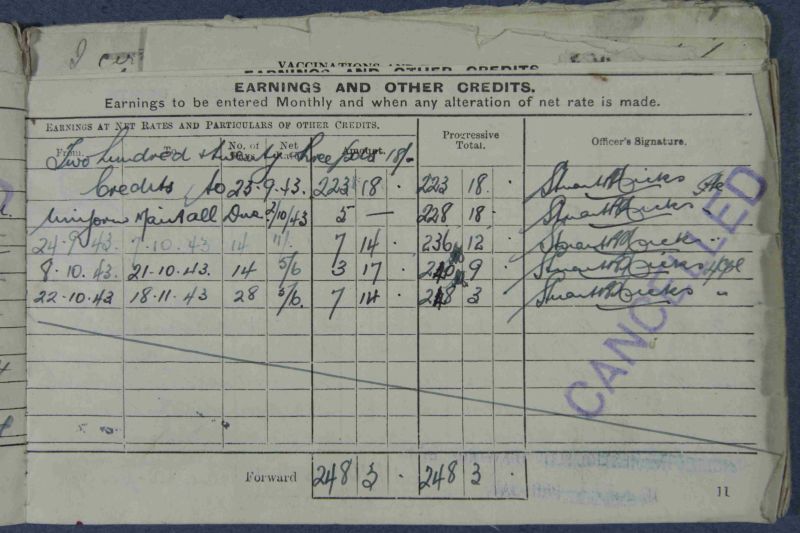 I cer
VACCINATIONS AND
EARNINGS AND OTHER CREDITS
EARNINGS AND OTHER CREDITS.
Earnings to be entered Monthly and when any alteration of net rate is made.
EARNINGS AT NET RATES AND PARTICULARS OF OTHER CREDITS.
From To No. of Net Amount. Progressive Total. Officer's Signature.
Two hundred & twenty three pds 18/-
Credits to 23.9.43. 223 18 . 223 18 . Stuart Hicks
Uniform Maint all Due 3/10/43 5 — 228 18 . Stuart Hicks "
24-9.43. 7.10.43 14 11/. 7 14 . 236 12 . Stuart Hicks
8.10.43. 21.10.43. 14 5/6 3 17 . 9 . Stuart Hicks
22.10.43 18.11.43 28 5/6. 7 14 . 248 3 . Stuart Hicks "
CANCELLED
Forward 248 3 . 248 3 .
11